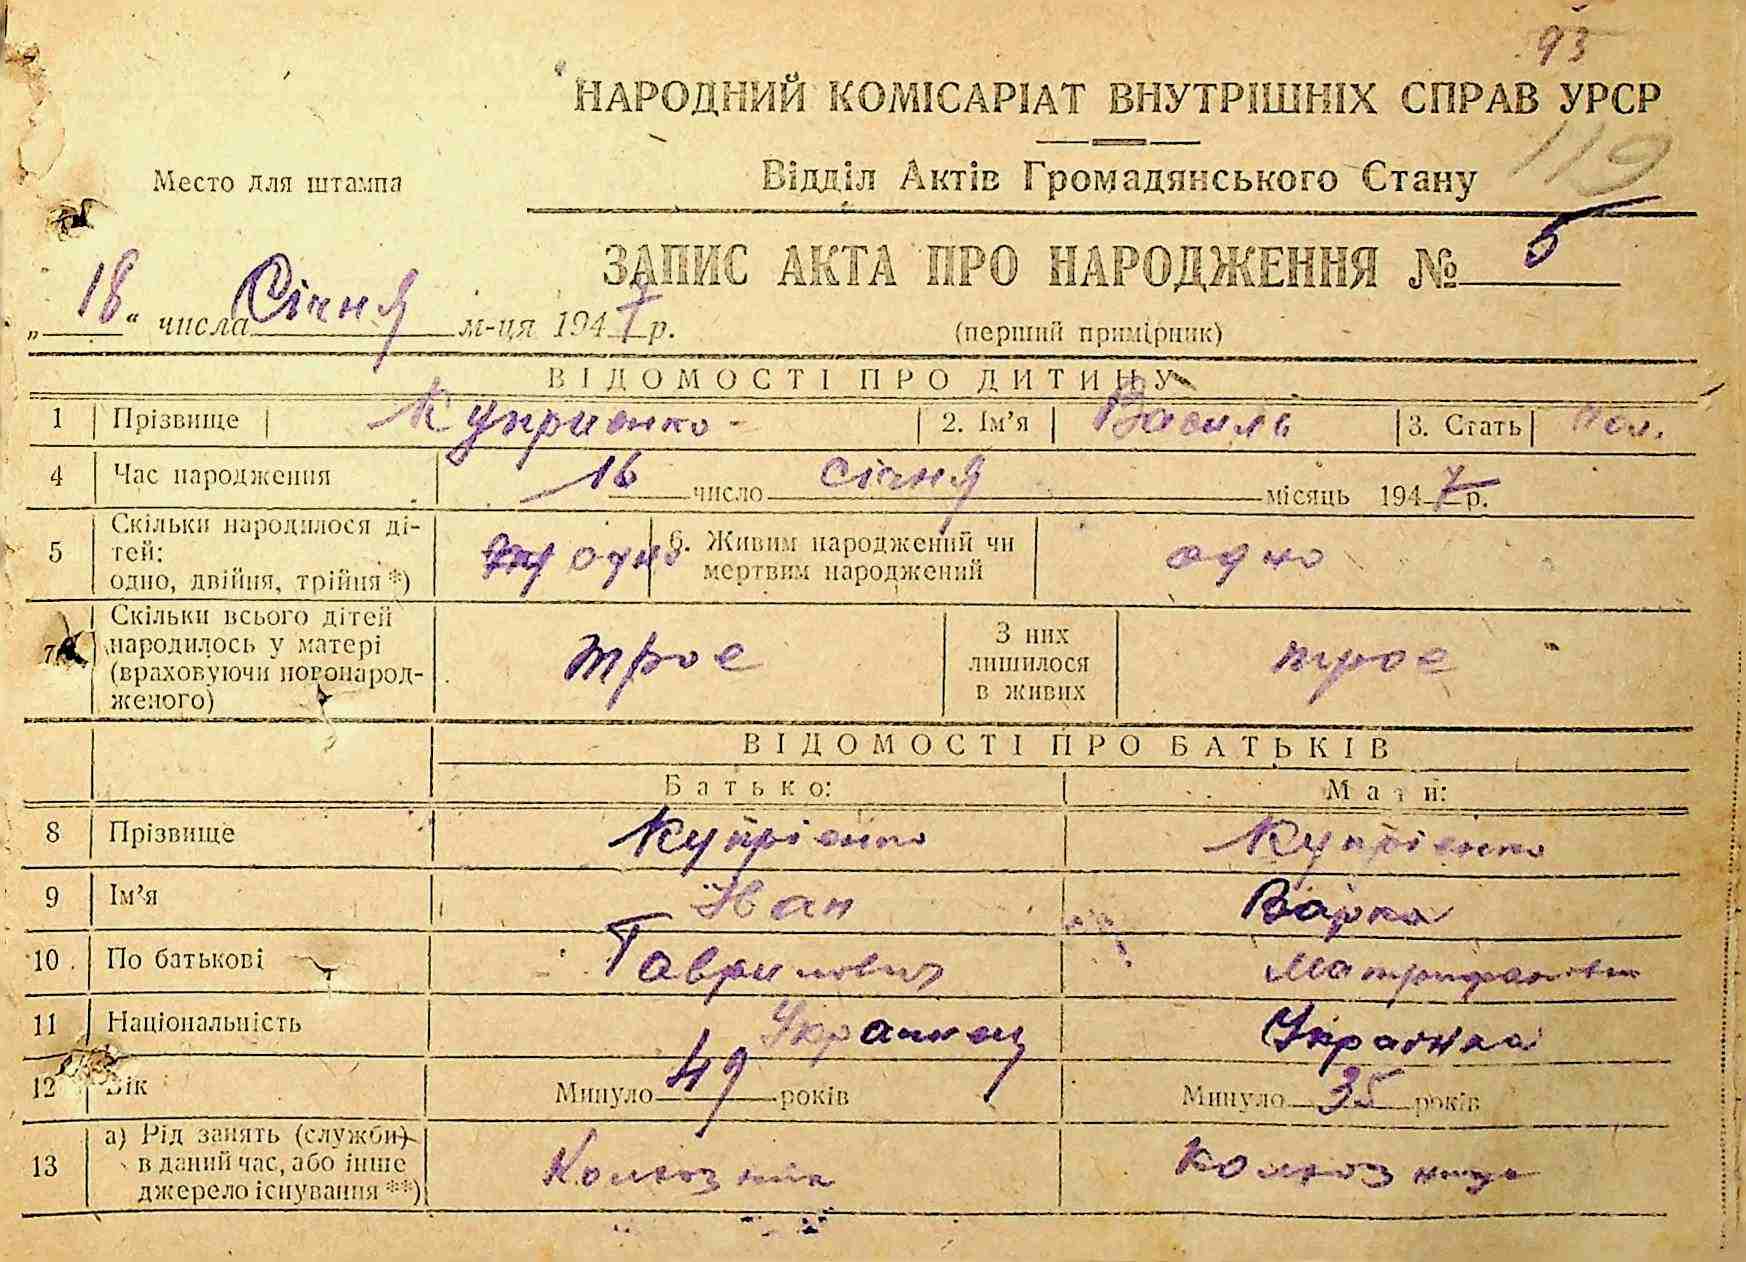 93
НАРОДНИЙ КОМІСАРІАТ ВНУТРІШНІХ СПРАВ УРСР
119
Место для штампа
Відділ Актів Громадянського Стану
ЗАПИС АКТА ПРО НАРОДЖЕННЯ № 5
„18“ числа Січня м-ця 1947 р.
(перший примірник)
ВІДОМОСТІ ПРО ДИТИНУ
1 Прізвище Куприенко - 2. Ім'я Василь 3. Стать Чол.
4 Час народження 16 число січня місяць 1947 р.
5 Скільки народилося ді-
тей:
одно, двійня, трійня *) одно 6. Живим народжений чи
мертвим народжений одно
7 Скільки всього дітей
народилось у матері
(враховуючи новонарод-
женого) троє З них
лишилося
в живих троє
ВІДОМОСТІ ПРО БАТЬКІВ
Батько: Мати:
8 Прізвище Купрієнко Купрієнко
9 Ім'я Іван Варка
10 По батькові Гаврилович Матрифановна
11 Національність Украинец Українка
12 Вік Минуло 49 років Минуло 35 років
13 а) Рід занять (служби)
в даний час, або інше
джерело існування **) Колхозник колхозница